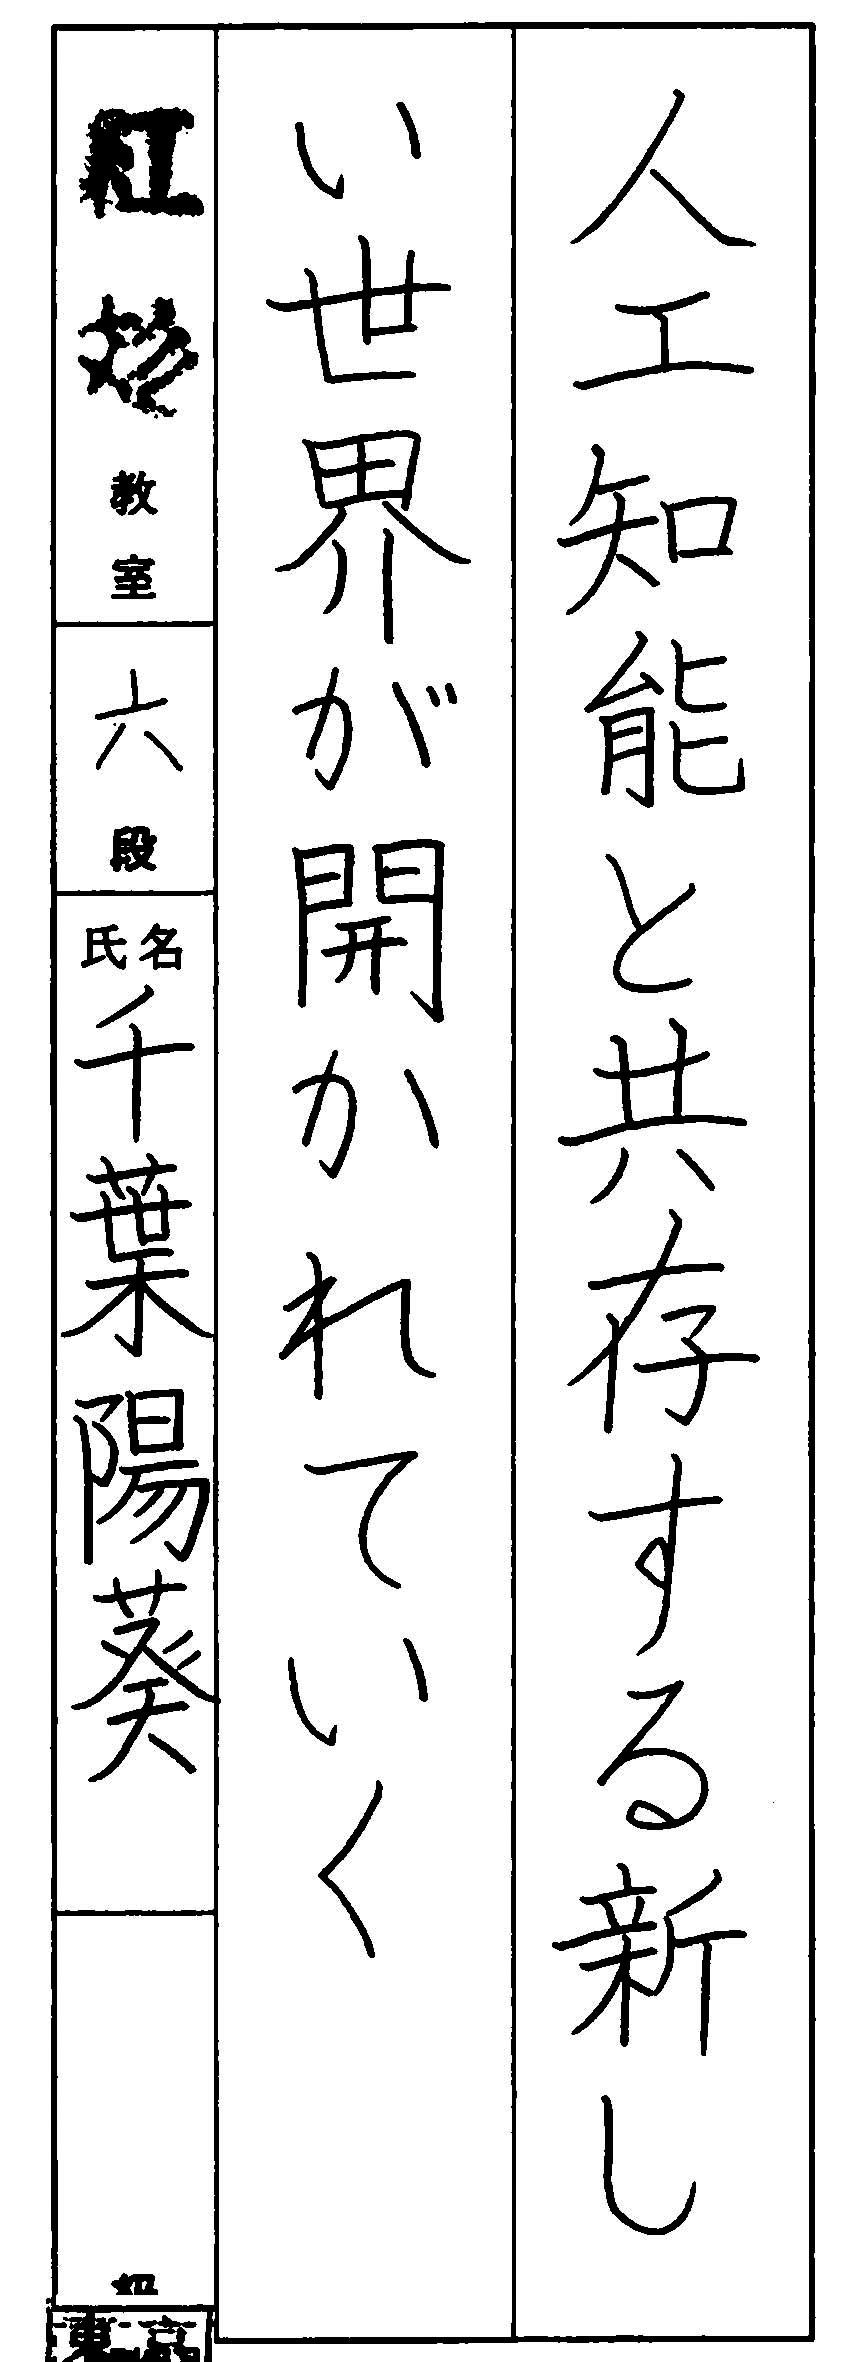 人工知能と共存する新し
い世界が開かれていく
教室
六段
氏名
千葉陽葵